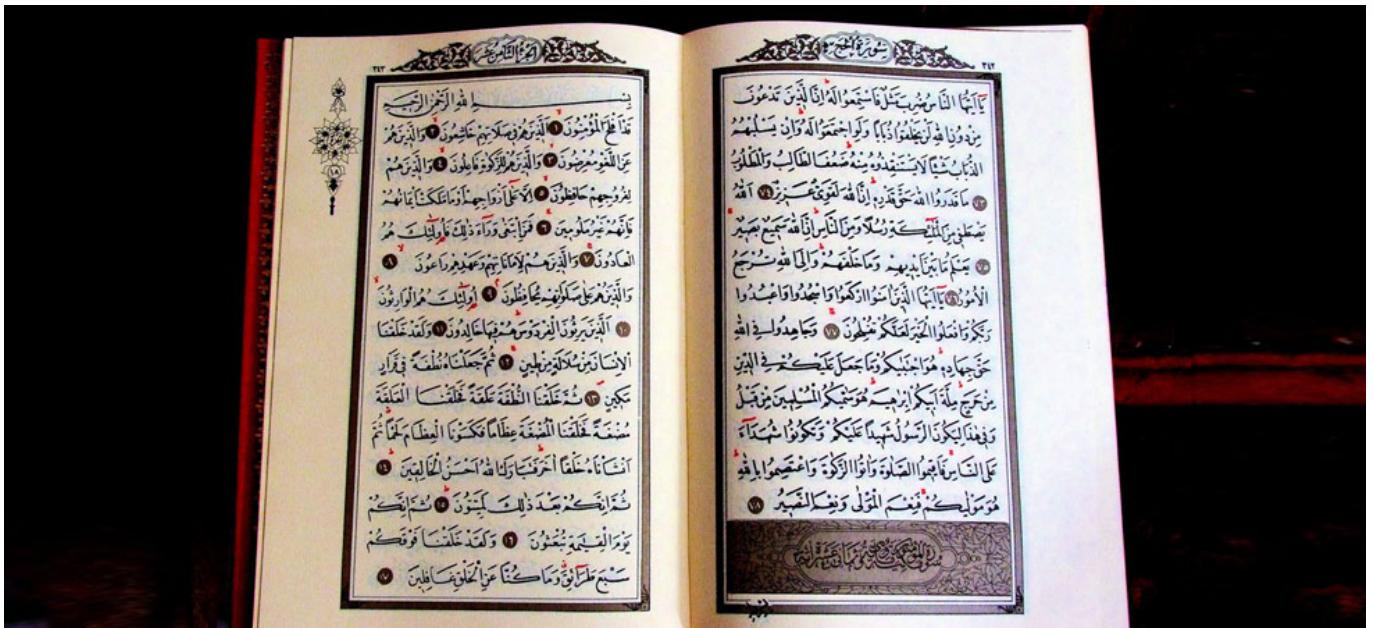 سورة الحج
٣٤٢
يَا أَيُّهَا النَّاسُ ضُرِبَ مَثَلٌ فَاسْتَمِعُوا لَهُ إِنَّ الَّذِينَ تَدْعُونَ
مِنْ دُونِ اللهِ لَنْ يَخْلُقُوا ذُبَابًا وَلَوِ اجْتَمَعُوا لَهُ وَإِنْ يَسْلُبْهُمُ
الذُّبَابُ شَيْئًا لَا يَسْتَنْقِذُوهُ مِنْهُ ضَعُفَ الطَّالِبُ وَالْمَطْلُوبُ
٧٣ مَا قَدَرُوا اللهَ حَقَّ قَدْرِهِ إِنَّ اللهَ لَقَوِيٌّ عَزِيزٌ ٧٤ اَللهُ
يَصْطَفِي مِنَ الْمَلٰئِكَةِ رُسُلًا وَمِنَ النَّاسِ إِنَّ اللهَ سَمِيعٌ بَصِيرٌ
٧٥ يَعْلَمُ مَا بَيْنَ أَيْدِيهِمْ وَمَا خَلْفَهُمْ وَإِلَى اللهِ تُرْجَعُ
الْأُمُورُ ٧٦ يَا أَيُّهَا الَّذِينَ آمَنُوا ارْكَعُوا وَاسْجُدُوا وَاعْبُدُوا
رَبَّكُمْ وَافْعَلُوا الْخَيْرَ لَعَلَّكُمْ تُفْلِحُونَ ٧٧ وَجَاهِدُوا فِي اللهِ
حَقَّ جِهَادِهِ هُوَ اجْتَبٰيكُمْ وَمَا جَعَلَ عَلَيْكُمْ فِي الدِّينِ
مِنْ حَرَجٍ مِلَّةَ أَبِيكُمْ إِبْرٰهِيمَ هُوَ سَمّٰيكُمُ الْمُسْلِمِينَ مِنْ قَبْلُ
وَفِي هٰذَا لِيَكُونَ الرَّسُولُ شَهِيدًا عَلَيْكُمْ وَتَكُونُوا شُهَدَاءَ
عَلَى النَّاسِ فَأَقِيمُوا الصَّلٰوةَ وَآتُوا الزَّكٰوةَ وَاعْتَصِمُوا بِاللهِ
هُوَ مَوْلٰيكُمْ فَنِعْمَ الْمَوْلٰى وَنِعْمَ النَّصِيرُ ٧٨
الجزء الثامن عشر
٣٤٣
بِسْمِ اللهِ الرَّحْمٰنِ الرَّحِيمِ
قَدْ أَفْلَحَ الْمُؤْمِنُونَ ١ اَلَّذِينَ هُمْ فِي صَلَاتِهِمْ خَاشِعُونَ ٢ وَالَّذِينَ هُمْ
عَنِ اللَّغْوِ مُعْرِضُونَ ٣ وَالَّذِينَ هُمْ لِلزَّكٰوةِ فَاعِلُونَ ٤ وَالَّذِينَ هُمْ
لِفُرُوجِهِمْ حَافِظُونَ ٥ إِلَّا عَلٰى أَزْوَاجِهِمْ أَوْ مَا مَلَكَتْ أَيْمَانُهُمْ
فَإِنَّهُمْ غَيْرُ مَلُومِينَ ٦ فَمَنِ ابْتَغٰى وَرَاءَ ذٰلِكَ فَأُولٰئِكَ هُمُ
الْعَادُونَ ٧ وَالَّذِينَ هُمْ لِأَمَانَاتِهِمْ وَعَهْدِهِمْ رَاعُونَ ٨
وَالَّذِينَ هُمْ عَلٰى صَلَوَاتِهِمْ يُحَافِظُونَ ٩ أُولٰئِكَ هُمُ الْوَارِثُونَ
١٠ اَلَّذِينَ يَرِثُونَ الْفِرْدَوْسَ هُمْ فِيهَا خَالِدُونَ ١١ وَلَقَدْ خَلَقْنَا
الْإِنْسَانَ مِنْ سُلَالَةٍ مِنْ طِينٍ ١٢ ثُمَّ جَعَلْنَاهُ نُطْفَةً فِي قَرَارٍ
مَكِينٍ ١٣ ثُمَّ خَلَقْنَا النُّطْفَةَ عَلَقَةً فَخَلَقْنَا الْعَلَقَةَ
مُضْغَةً فَخَلَقْنَا الْمُضْغَةَ عِظَامًا فَكَسَوْنَا الْعِظَامَ لَحْمًا ثُمَّ
أَنْشَأْنَاهُ خَلْقًا آخَرَ فَتَبَارَكَ اللهُ أَحْسَنُ الْخَالِقِينَ ١٤
ثُمَّ إِنَّكُمْ بَعْدَ ذٰلِكَ لَمَيِّتُونَ ١٥ ثُمَّ إِنَّكُمْ
يَوْمَ الْقِيٰمَةِ تُبْعَثُونَ ١٦ وَلَقَدْ خَلَقْنَا فَوْقَكُمْ
سَبْعَ طَرَائِقَ وَمَا كُنَّا عَنِ الْخَلْقِ غَافِلِينَ ١٧